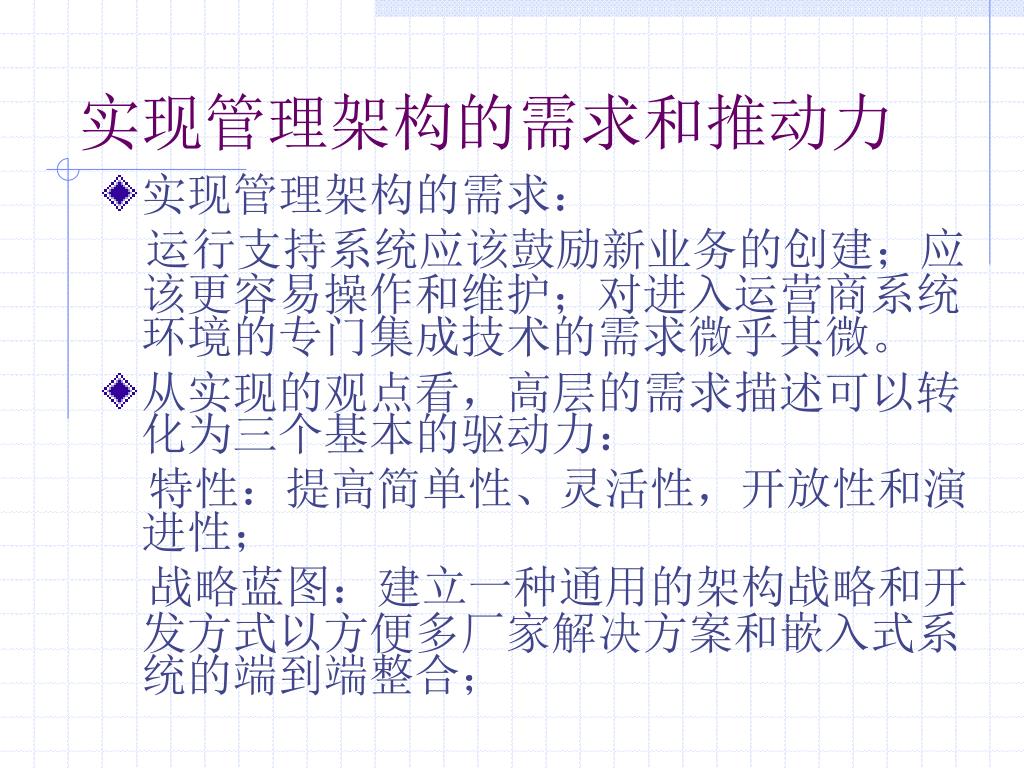 实现管理架构的需求和推动力
实现管理架构的需求：
运行支持系统应该鼓励新业务的创建；应
该更容易操作和维护；对进入运营商系统
环境的专门集成技术的需求微乎其微。
从实现的观点看，高层的需求描述可以转
化为三个基本的驱动力：
特性：提高简单性、灵活性，开放性和演
进性；
战略蓝图：建立一种通用的架构战略和开
发方式以方便多厂家解决方案和嵌入式系
统的端到端整合；